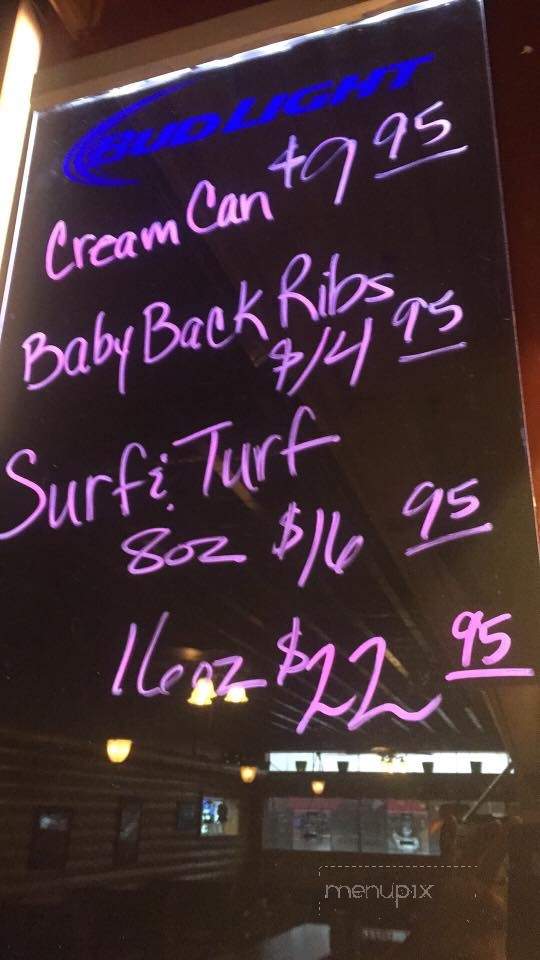 BUD LIGHT
Cream Can $9 95
Baby Back Ribs
$14 95
Surf & Turf
8oz $16 95
16oz $22 95
menupix